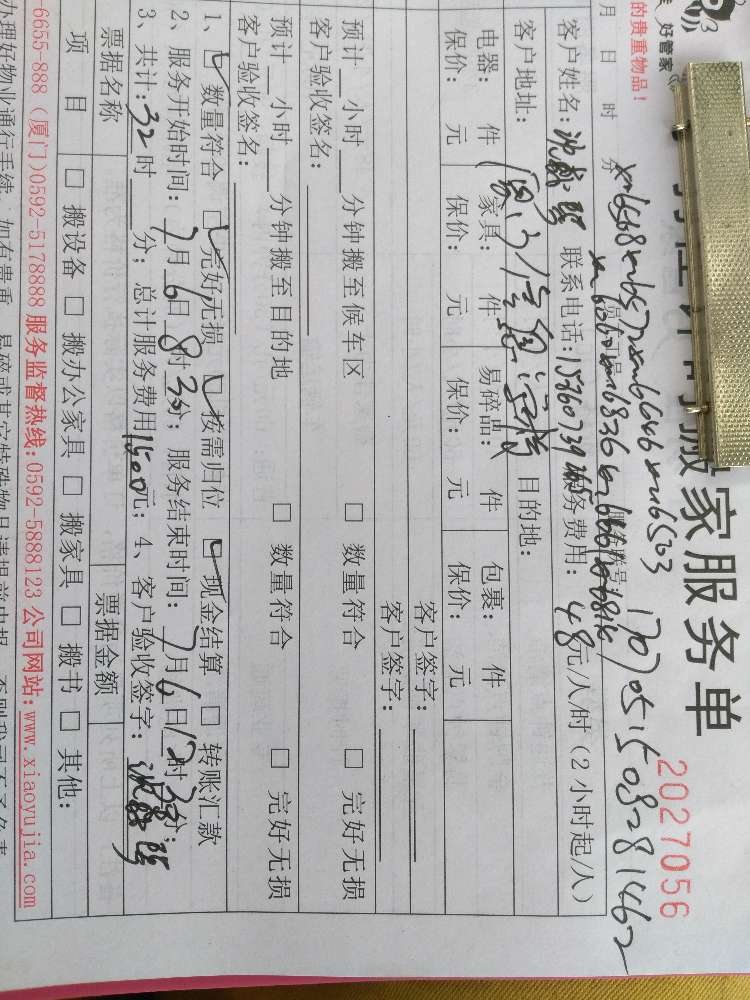 好管家
的贵重物品！
搬家服务单
2027056
月 日 时 分
1707051508281462
客户姓名： 联系电话：15960739 服务费用：48元/人/时（2小时起/人）
客户地址： 目的地：
电器： 件 家具： 件 易碎品： 件 包裹： 件
保价： 元 保价： 元 保价： 元 保价： 元
客户签字：
客户签字：
预计 小时 分钟搬至候车区 □ 数量符合 □ 完好无损
客户验收签名：
预计 小时 分钟搬至目的地 □ 数量符合 □ 完好无损
客户验收签名：
1、☑ 数量符合 ☑ 完好无损 ☑ 按需归位 ☑ 现金结算 □ 转账汇款
2、服务开始时间：7月6日8时30分；服务结束时间：7月6日12时30分；
3、共计：32时 分；总计服务费用1500元；4、客户验收签字：
票据名称 票据金额
项 目 □ 搬设备 □ 搬办公家具 □ 搬家具 □ 搬书 □ 其他：
6655-888（厦门）0592-5178888 服务监督热线：0592-5888123 公司网站：www.xiaoyujia.com
办理好物业通行手续，如有贵重、易碎或其它特殊物品请提前申报，否则我司不予负责